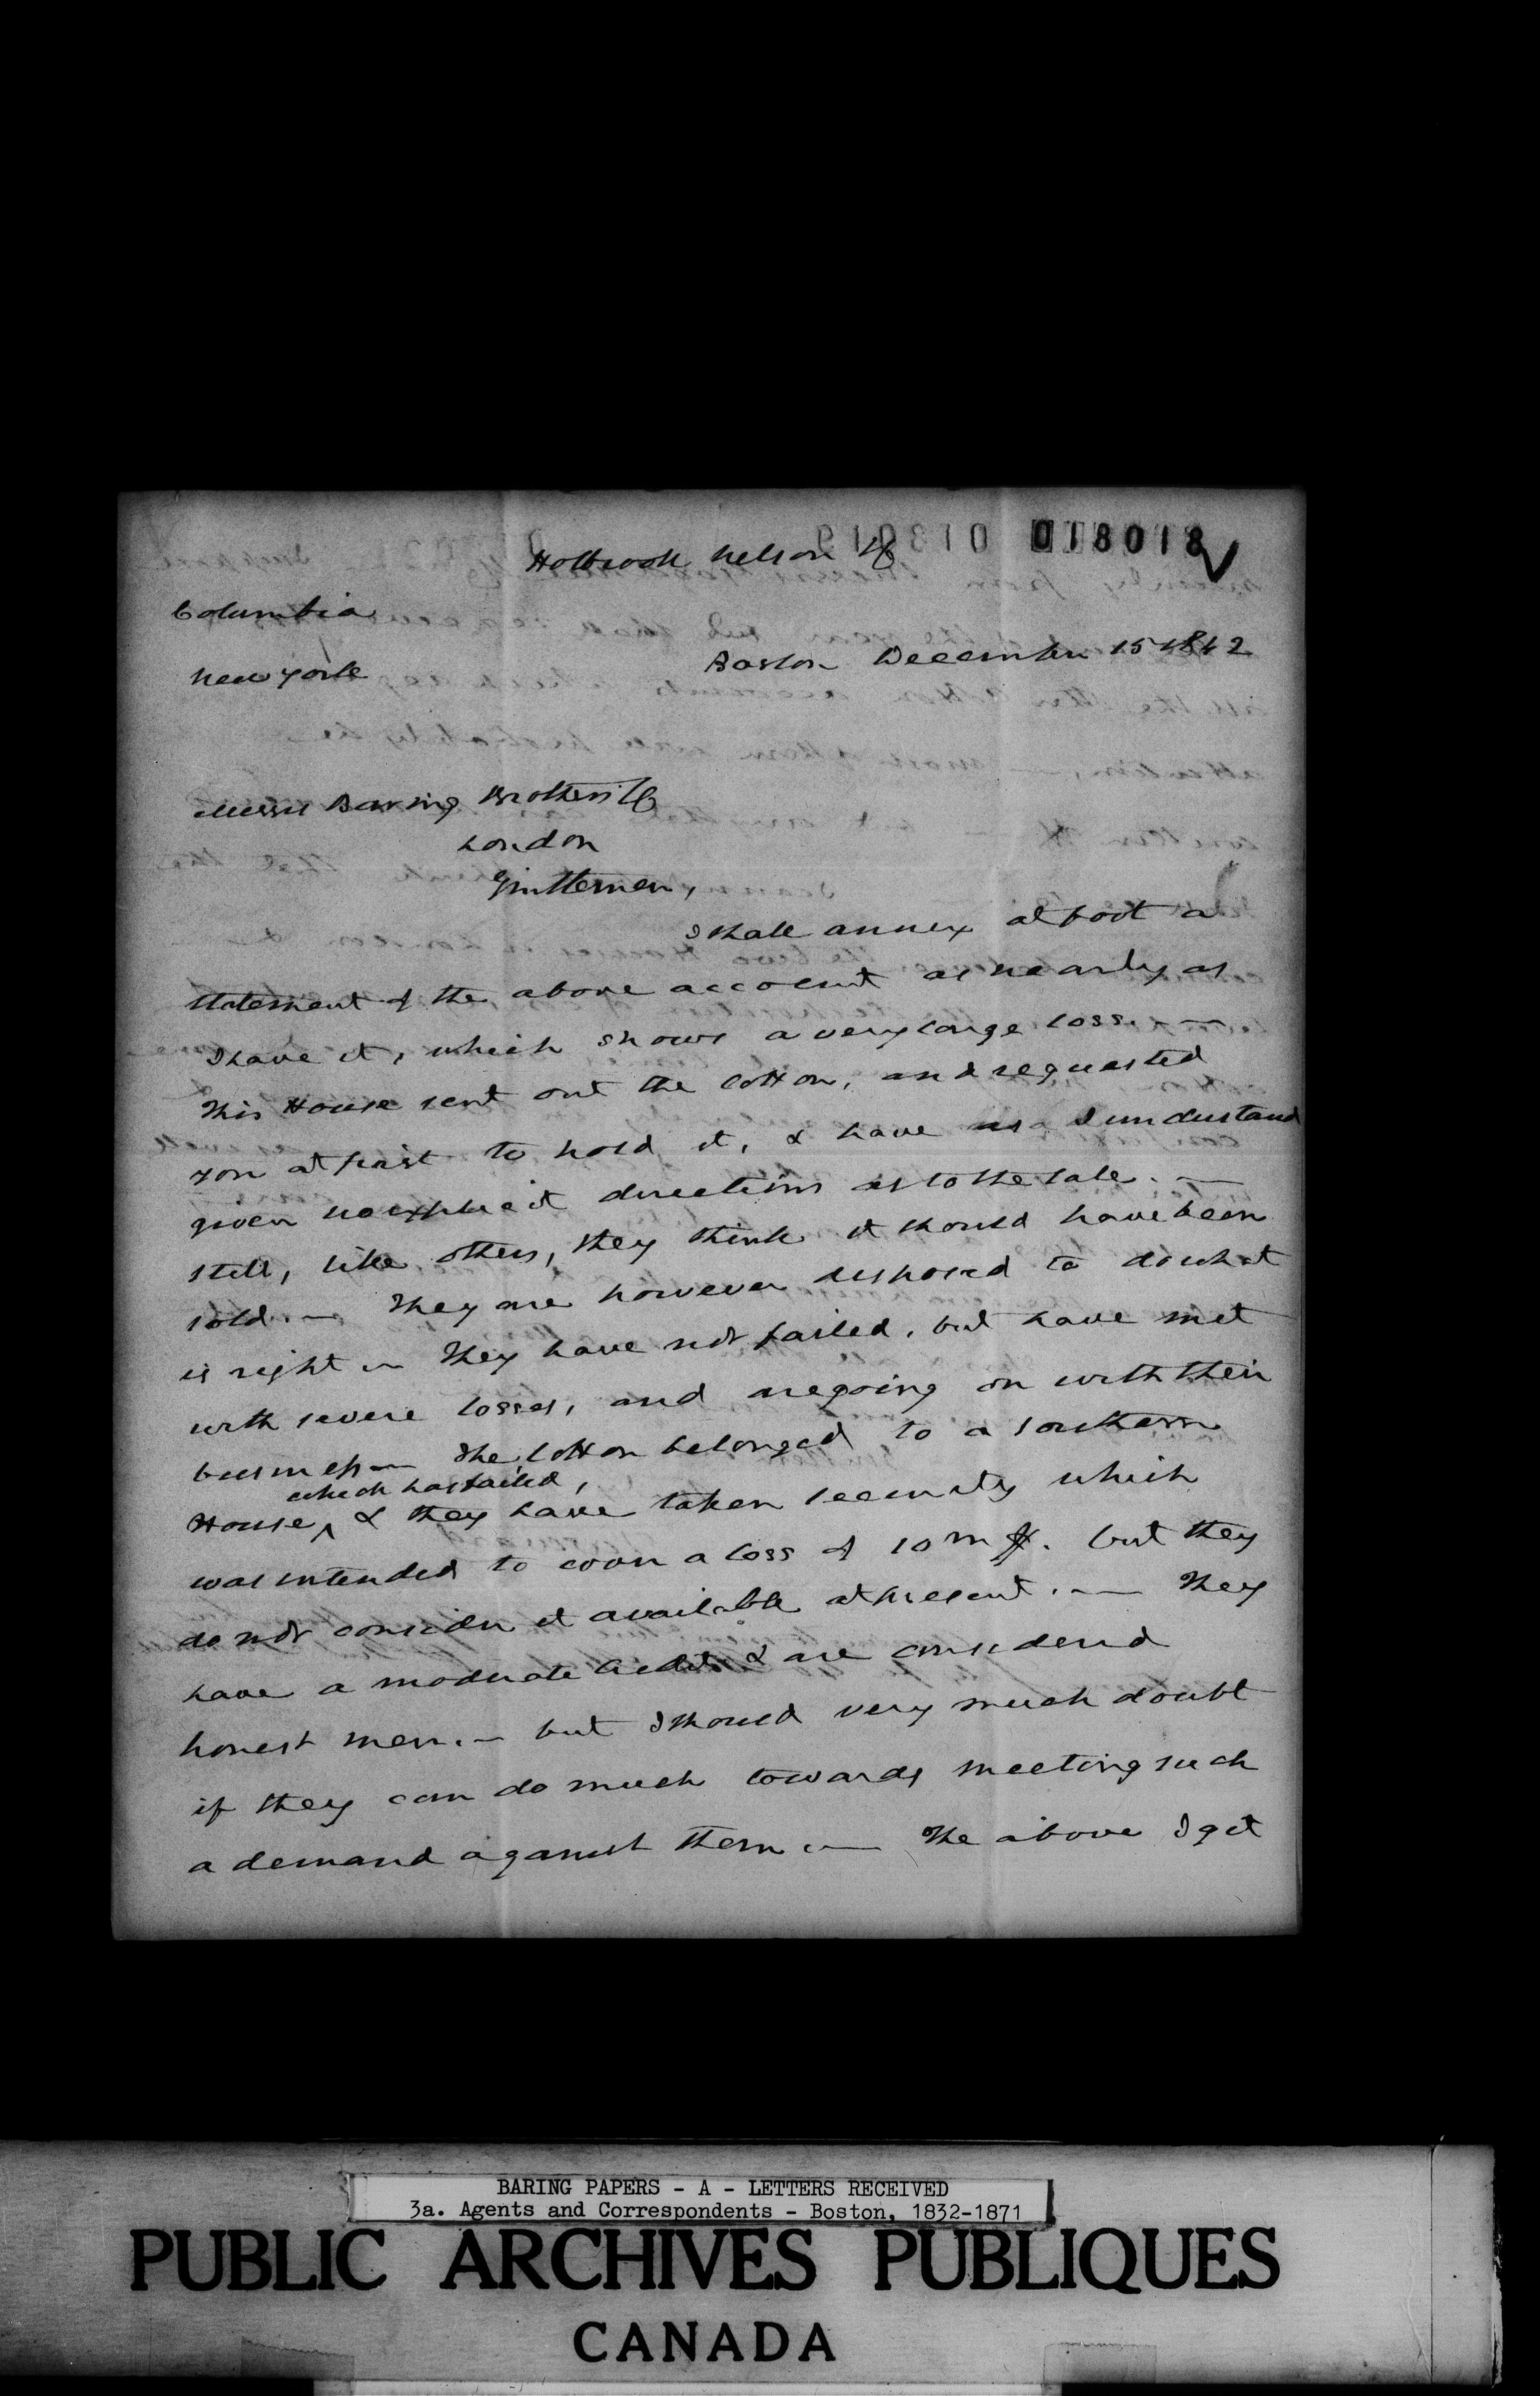 018018
Holbrook Nelson & Co
Columbia
New York
Boston December 15 1842
Messrs Baring Brothers & Co
London
Gentlemen,
I shall annex at foot a
statement of the above account as nearly as
I have it, which shows a very large loss. —
This House sent out the cotton, and requested
you at first to hold it, & have as I understand
given no explicit directions as to the sale. —
still, like others, they think it should have been
sold. — They are however disposed to do what
is right — They have not failed, but have met
with severe losses, and are going on with their
business — The Cotton belonged to a Southern
which has failed,
House, & they have taken security which
was intended to cover a loss of 10 m $. but they
do not consider it available at present. — They
have a moderate credit & are considered
honest men. — but I should very much doubt
if they can do much towards meeting such
a demand against them. — The above I get
BARING PAPERS - A - LETTERS RECEIVED
3a. Agents and Correspondents - Boston, 1832-1871
PUBLIC ARCHIVES PUBLIQUES
CANADA